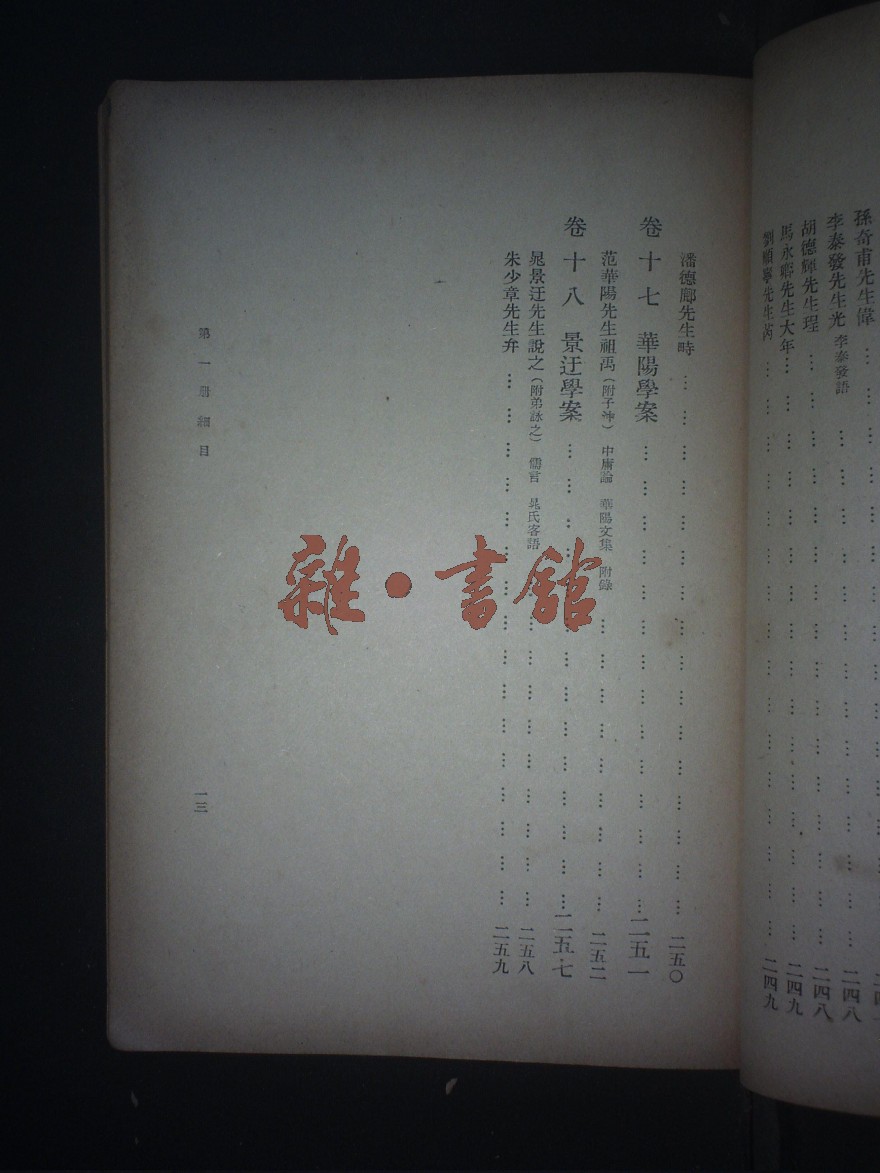 孫奇甫先生偉
李泰發先生光 李泰發語 … … … … … … … … … … … … 二四八
胡德輝先生珵 … … … … … … … … … … … … … 二四八
馬永卿先生大年 … … … … … … … … … … … … … 二四九
劉順寧先生芮 … … … … … … … … … … … … … 二四九
潘德鄜先生畤 … … … … … … … … … … … … 二五〇
卷十七 華陽學案 … … … … … … … … … … … 二五一
范華陽先生祖禹(附子沖) 中庸論 華陽文集 附錄 … … … … … … … 二五二
卷十八 景迂學案 … … … … … … … … … … … 二五七
晁景迂先生說之(附弟詠之) 儒言 晁氏客語 … … … … … … … … 二五八
朱少章先生弁 … … … … … … … … … … … … … 二五九
第一册細目
一三
雜·書館